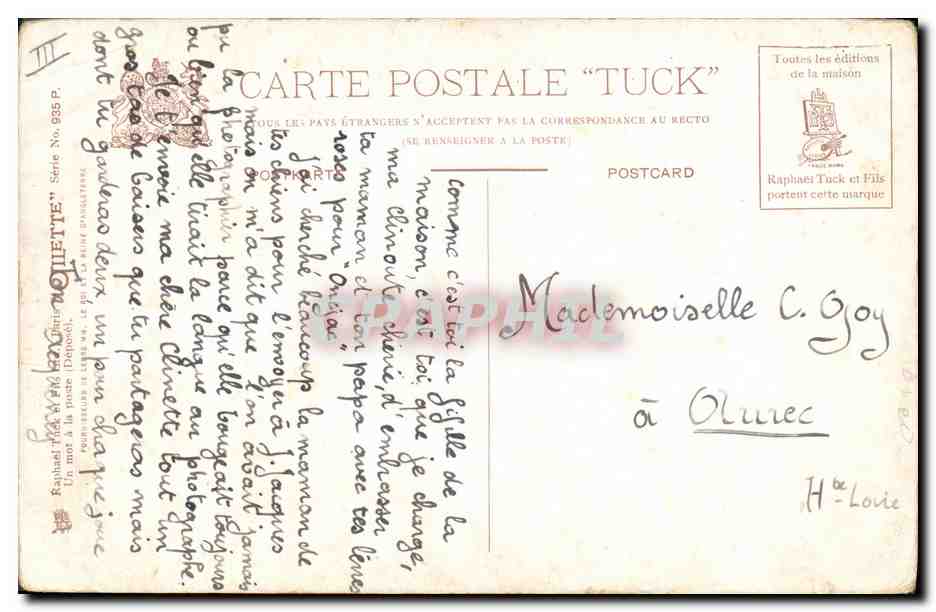 III
CARTE POSTALE "TUCK"
TOUS LES PAYS ÉTRANGERS N'ACCEPTENT PAS LA CORRESPONDANCE AU RECTO
(SE RENSEIGNER A LA POSTE)
POSTKARTE
POSTCARD
Toutes les éditions
de la maison
Raphael Tuck et Fils
portent cette marque
Comme c'est toi la fifille de la
maison, c'est toi que je charge,
ma Clinoute chérie, d'embrasser
ta maman et ton papa avec tes lèvres
roses pour "Onijac"
J'ai cherché beaucoup la maman de
tes chiens pour l'envoyer à J. Jacques
mais on m'a dit que l'on avait jamais
pu la photographier parce qu'elle bougeait toujours
ou bien qu'elle tirait la langue au photographe.
Je t'envoie ma chère Clinette tout un
gros tas de baisers que tu partageras mais
dont tu garderas deux un pour chaque joue
Ton
Mademoiselle C. Ojoy
à Aurec
Hte-Loire
CPAPHIL
FOURNISSEURS DE LEURS MM. LE ROI ET LA REINE D'ANGLETERRE
Série No. 935 P.
Raphael Tuck et Fils
Un mot à la poste (Déposé).